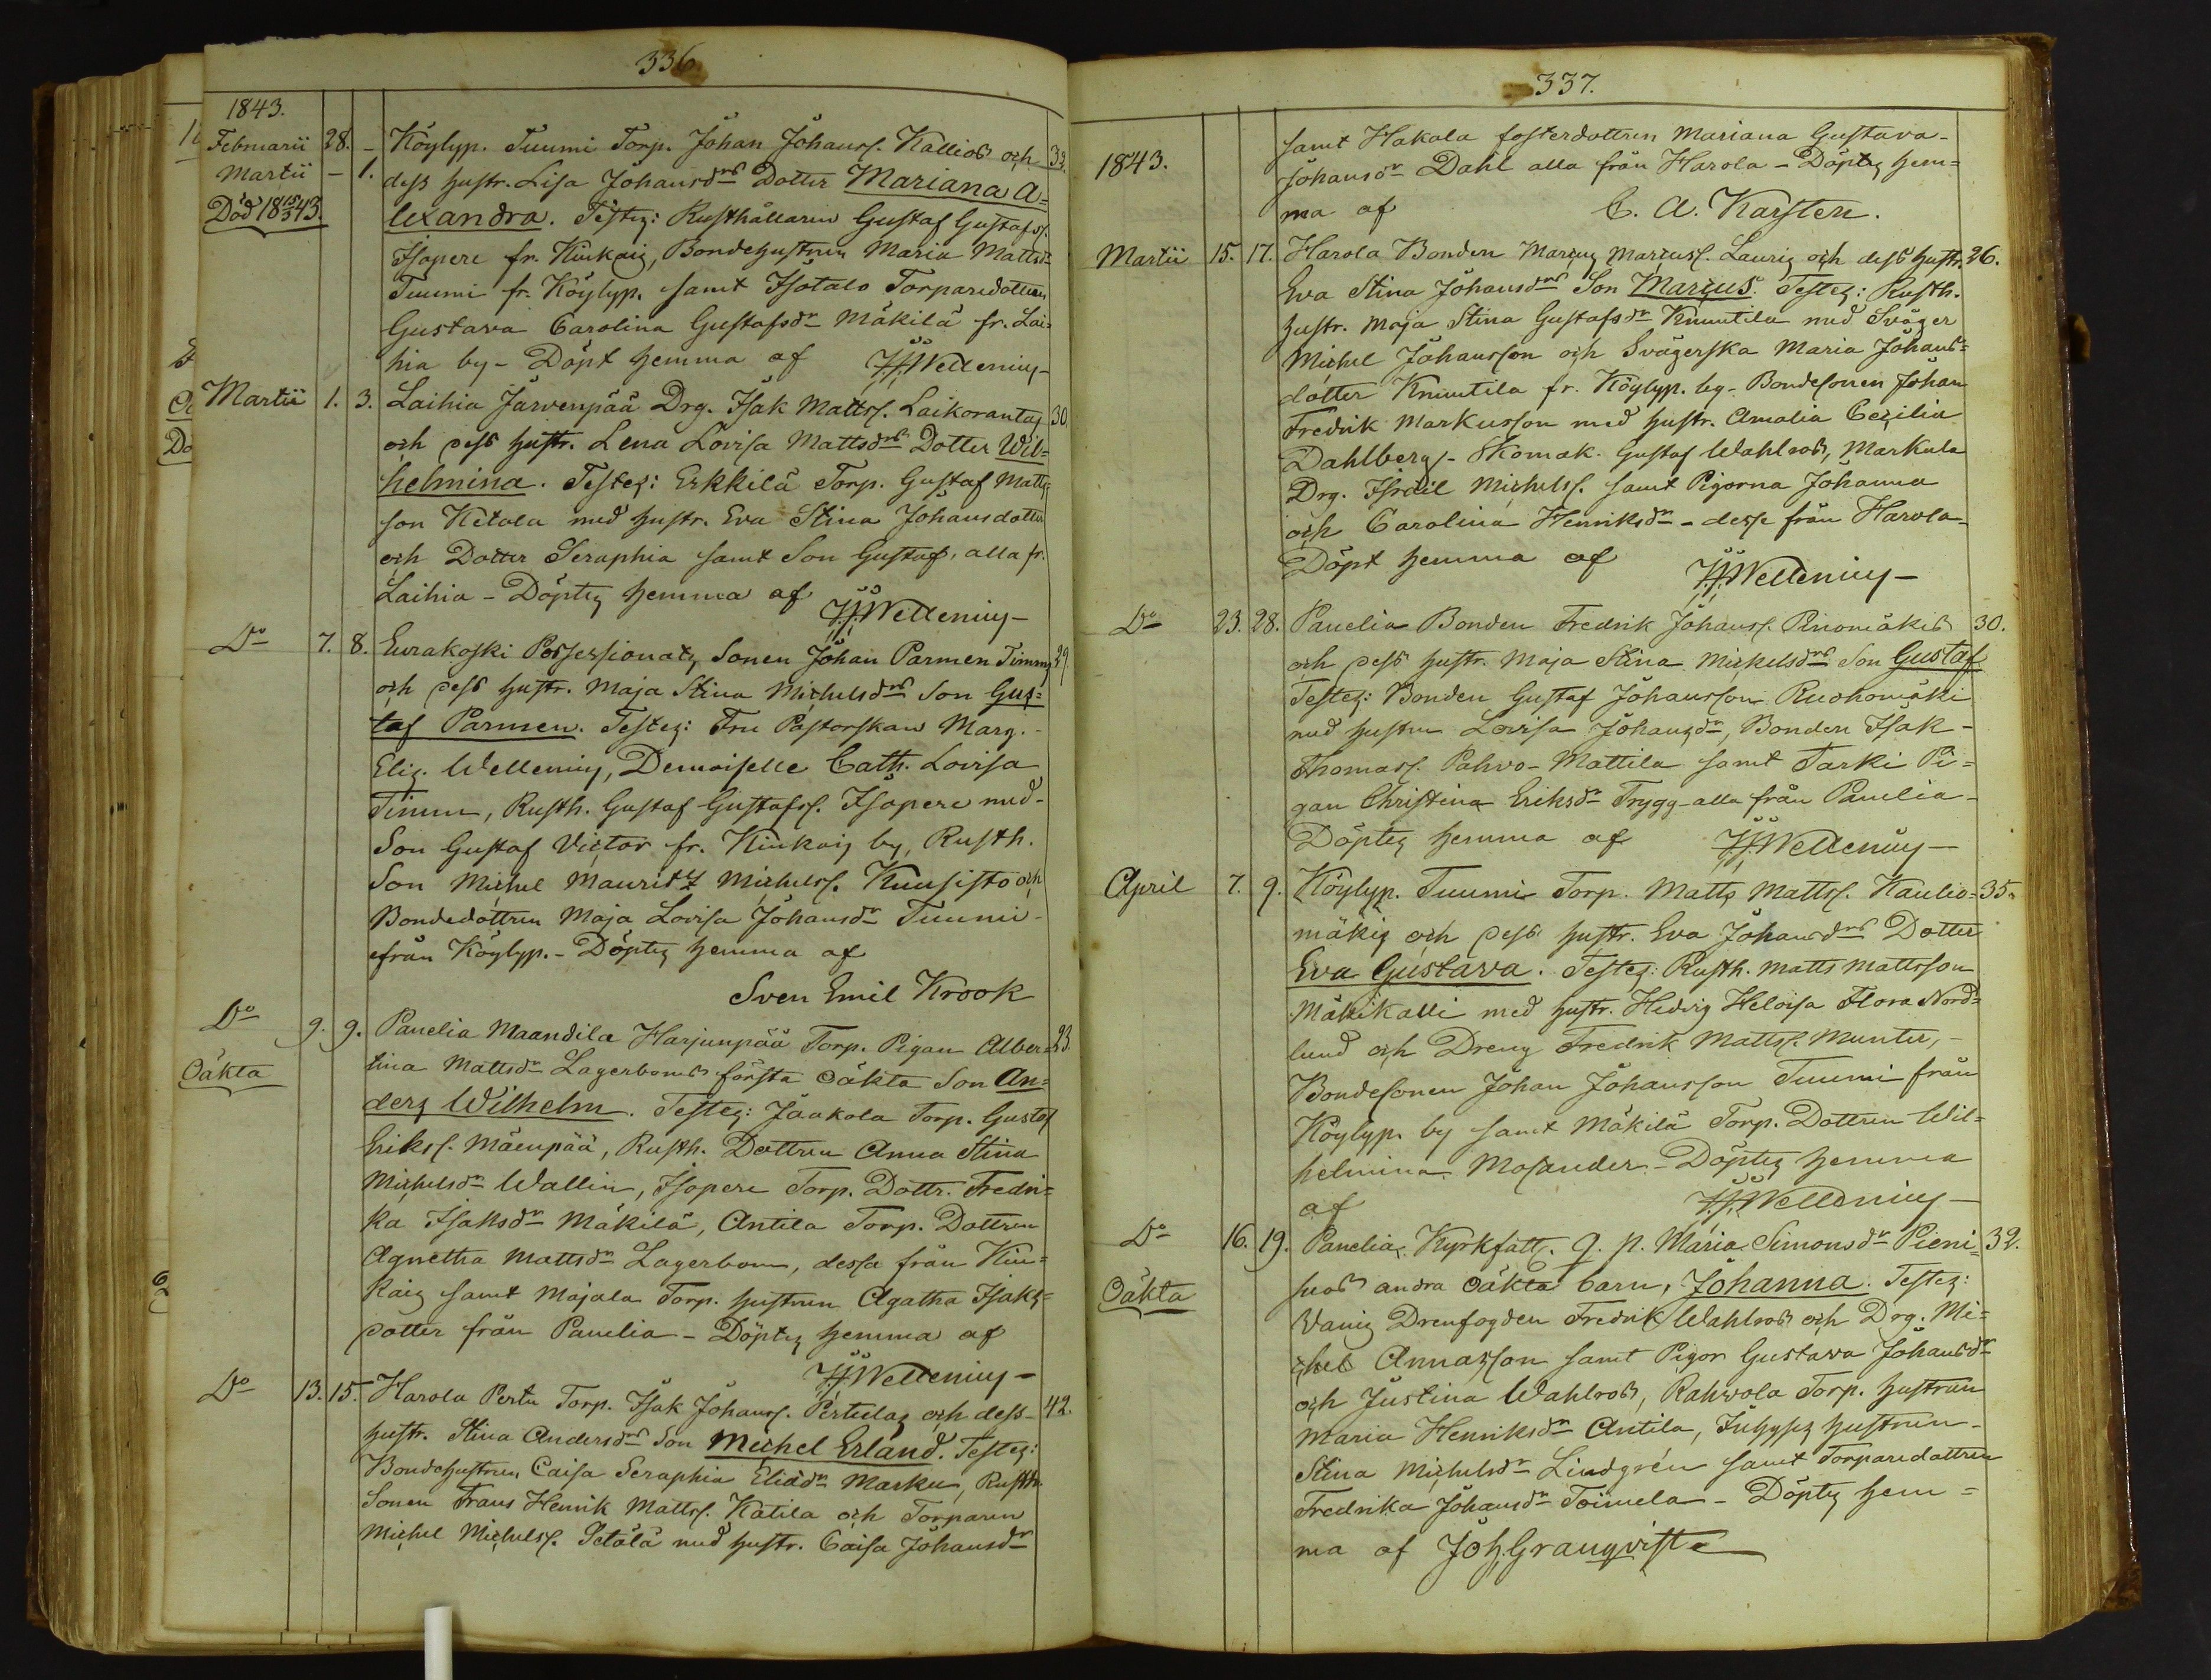 336.
1843.
Februarii 28. – Köylyp. Tuumi Torp. Johan Johanss. Kallios och 32.
Martii – 1. dess hustr. Lisa Johansdrs Dotter Mariana A=
Död 18 15/3 43. lexandra. Testes: Rusthållaren Gustaf Gustafss.
Isopere fr. Kiukais, Bondehustrun Maria Mattsdr
Tuumi fr. Köylyp. samt Isotalo Torparedottren
Gustava Carolina Gustafsdr Mäkilä fr. Lai=
hia by – Döpt hemma af J.J. Wellenius –
Martii 1. 3. Laihia Järvenpää Drg. Isak Mattss. Laikorantas 30.
och dess hustr. Lena Lovisa Mattsdrs Dotter Wil=
helmina. Testes: Erkkilä Torp. Gustaf Matts=
son Ketola med hustr. Eva Stina Johansdotter
och Dotter Seraphia samt Son Gustaf, alla fr.
Laihia – Döptes hemma af J.J. Wellenius –
Do 7. 8. Eurakoski Possessionats Sonen Johan Parmen Timms 29.
och dess hustr. Maja Stina Michelsdrs Son Gus=
taf Parmen. Testes: Fru Pastorskan Marg. –
Elis. Wellenius, Demoiselle Cath. Lovisa
Timm, Rusth. Gustaf Gustafss. Isopere med –
Son Gustaf Victor fr. Kiukais by, Rusth.
Son Michel Mauritz Michelss. Kuusisto och
Bondedottren Maja Lovisa Johansdr Tuumi –
från Köylyp. – Döptes hemma af
Sven Emil Krook
Do 9. 9. Panelia Maandila Harjunpää Torp. Pigan Alber= 23.
Oäkta tina Mattsdr Lagerboms första oäkta Son An=
ders Wilhelm. Testes: Jaakola Torp. Gustaf
Erikss. Mäenpää, Rusth. Dottren Anna Stina
Michelsdr Wallin, Isopere Torp. Dottr. Fredri=
ka Isaksdr Mäkilä, Antila Torp. Dottren
Agnetha Mattsdr Lagerbom, dessa från Kiu=
kais samt Majala Torp. hustrun Agatha Isaks=
dotter från Panelia – Döptes hemma af
J.J. Wellenius –
Do 13. 15. Harola Pertu Torp. Isak Johanss. Pertulas och dess – 42.
hustr. Stina Andersdrs Son Michel Erland. Testes:
Bondehustrun Caisa Seraphia Eliadr Marku, Rusth.
Sonen Frans Henrik Mattss. Katila och Torparen
Michel Michelss. Setälä med hustr. Caisa Johansdr
337.
1843. samt Hakala fosterdottren Mariana Gustava –
Johansdr Dahl alla från Harola – Döptes hem=
ma af C. A. Karsten.
Martii 15. 17. Harola Bonden Marcus Marcuss. Lauris och dess hustr. 26.
Eva Stina Johansdrs Son Marcus. Testes: Rusth.
hustr. Maja Stina Gustafsdr Knuutila med Svåger
Michel Johansson och Svägerska Maria Johans=
dotter Knuutila fr. Köylyp. by – Bondesonen Johan
Fredrik Markusson med hustr. Amalia Cecilia
Dahlberg – Skomak. Gustaf Wahlroos, Markula
Drg. Israel Michelss. samt Pigorna Johanna
och Carolina Henriksdr – desse från Harola –
Döpt hemma af J.J. Wellenius –
Do 23. 28. Panelia Bonden Fredrik Johanss. Ruomäkis 30.
och dess hustr. Maja Stina Michelsdrs Son Gustaf
Testes: Bonden Gustaf Johansson Ruohomäki
med hustrn Lovisa Johansdr, Bonden Isak –
Thomass. Pahvo-Mattila samt Tarki Pi=
gan Christina Eriksdr Trygg – alla från Panelia –
Döptes hemma af J.J. Wellenius –
April 7. 9. Köylyp. Tuumi Torp. Matts Mattss. Kaulio= 35.
mäkis och dess hustr. Eva Johansdrs Dotter
Eva Gustava. Testes: Rusth. Matts Mattsson
Mäkikalli med hustr. Hedvig Heloisa Flora Nord=
lund och Dreng Fredrik Mattss. Munter, –
Bondesonen Johan Johansson Tuumi från
Köylyp. by samt Mäkilä Torp. Dottren Wil=
helmina Mosander – Döptes hemma
af J.J. Wellenius –
Do 16. 19. Panelia Kyrkfatt. q. p. Maria Simonsdr Pieni= 32.
Oäkta huos andra oäkta barn, Johanna. Testes:
Vanis Drenfogden Fredrik Wahlroos och Drg. Mi=
chel Annasson samt Pigor Gustava Johansdr
och Justina Wahlroos, Rahvola Torp. hustrun
Maria Henriksdr Antila, hustrun –
Stina Michelsdr Lindgrén samt Torparedottren
Fredrika Johansdr Toimela – Döptes hem=
ma af Joh. Granqvist